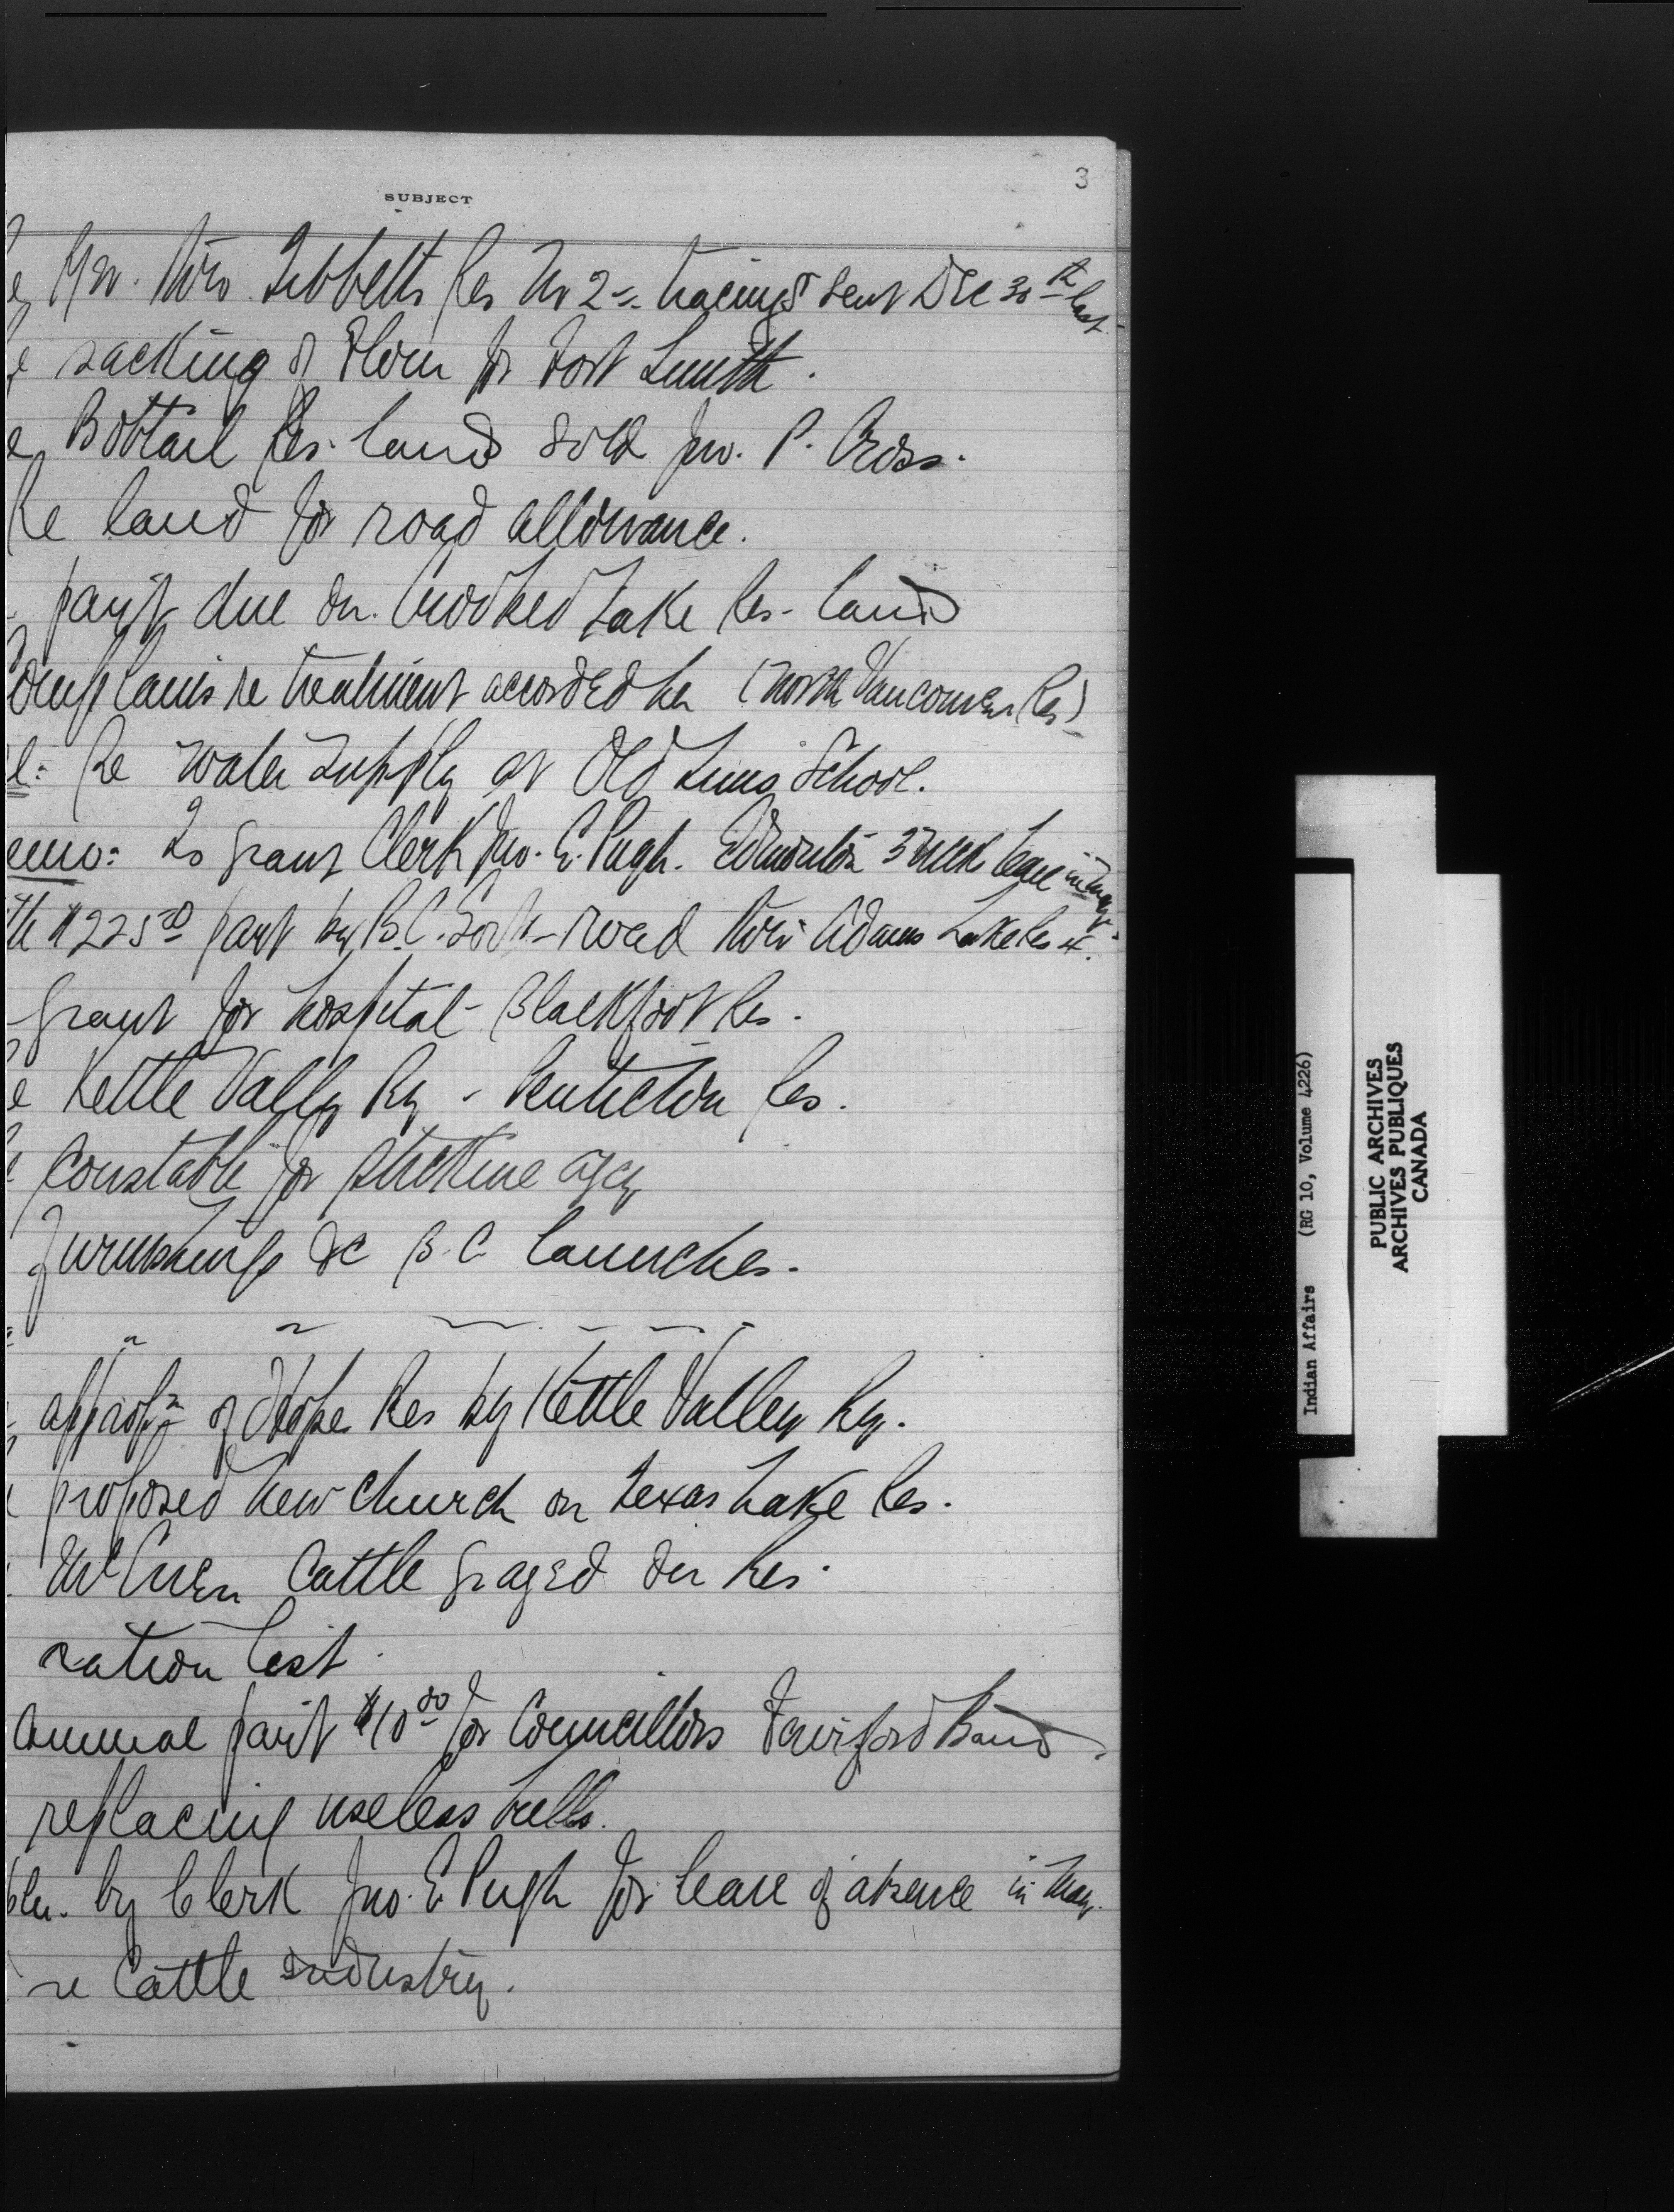 3
SUBJECT
Thro Tibbetts Res No 2 - tracings sent Dec 30th last
sacking of flour for Fort Smith.
Bobtail Res. land sold Jno. P. Cross.
Re land for road allowance.
paym't due on Crooked Lake Res - land
Complains re treatment accorded her (North Vancouver Res)
Re Water Supply at Old Suns School.
emo: To grant Clerk Jno. E. Pugh. Edmonton 3 week leave in May.
$225 00 paym't by B.C. Govt - road thro Adams Lake Res 4.
grant for hospital - Blackfoot Res.
e Kettle Vally Ry - Penticton Res.
Constable for Stickine agcy
Furnishings &c B.C. launches.
approp'n of Hope Res by Kettle Valley Ry.
proposed new church on Texas Lake Res.
Cattle grazed on Res.
ration list.
annual paym't $10 00 for Councillors Fairford Band.
replacing useless bulls.
by Clerk Jno. E Pugh for leave of absence in May.
re Cattle industry.
Indian Affairs (RG 10, Volume 4226)
PUBLIC ARCHIVES
ARCHIVES PUBLIQUES
CANADA